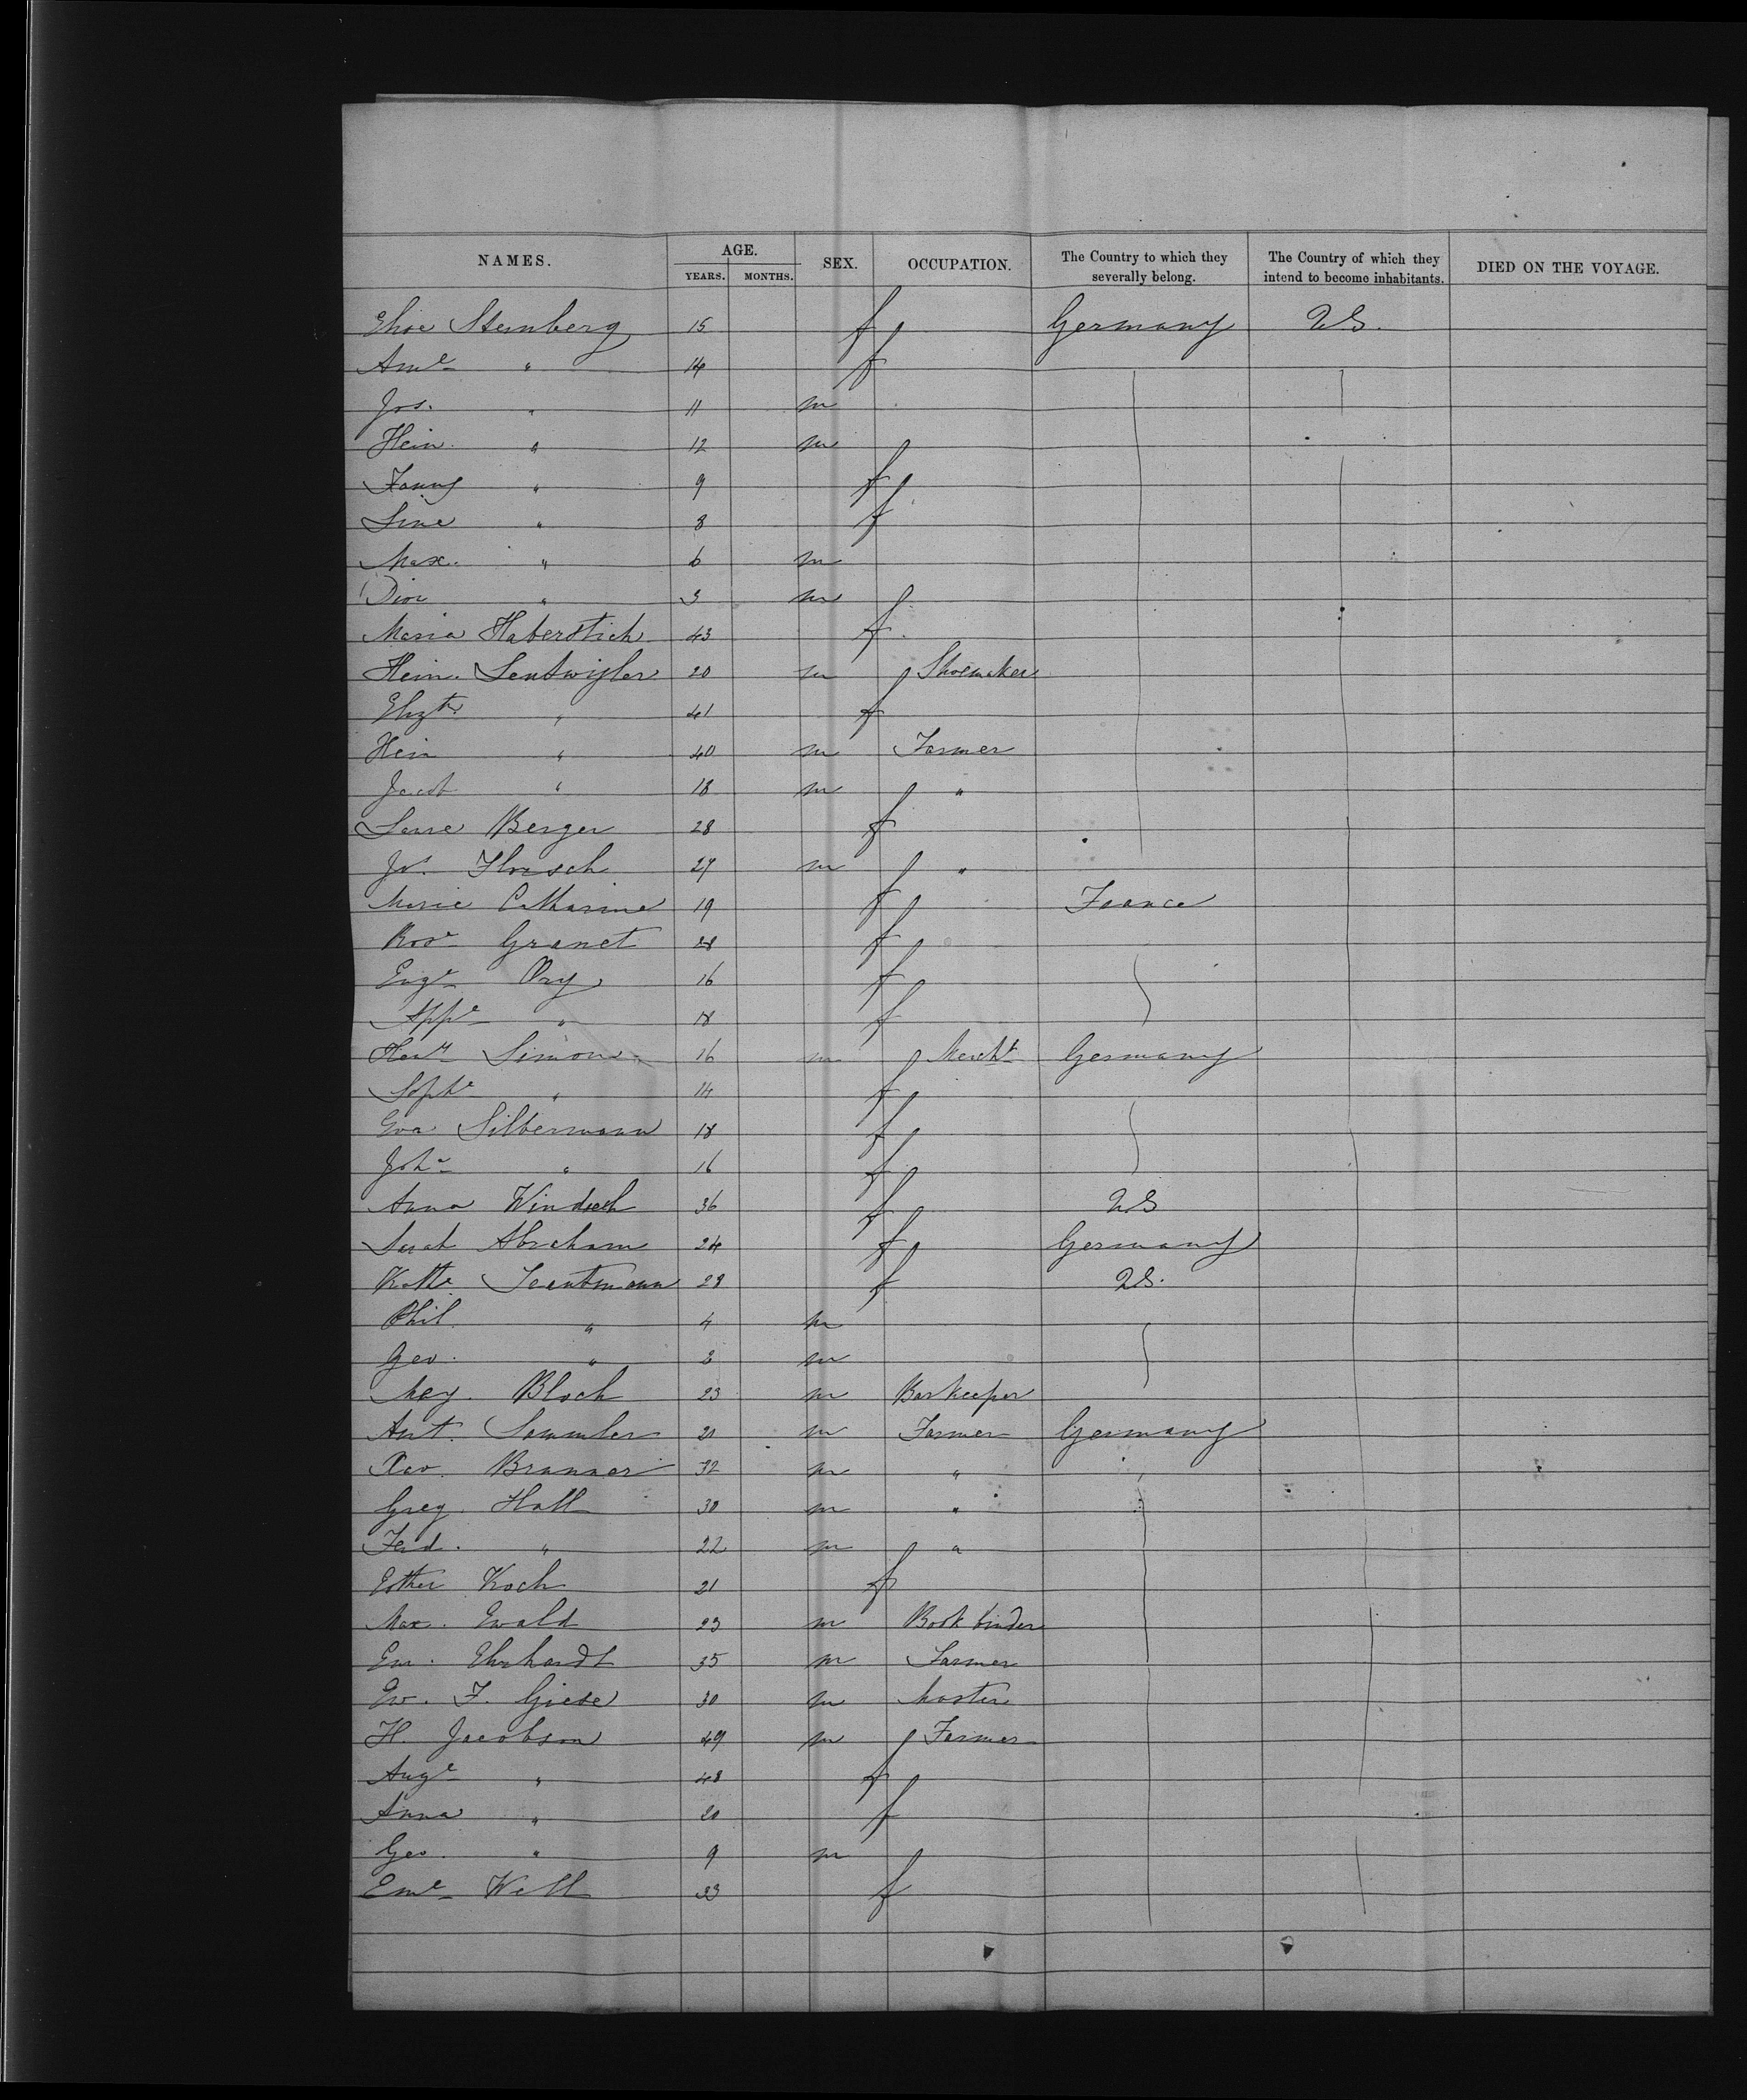 NAMES. AGE. SEX. OCCUPATION. The Country to which they severally belong. The Country of which they intend to become inhabitants. DIED ON THE VOYAGE.
YEARS. MONTHS.
Elise Steinberg 15 f Germany U.S.
Ame " 14 f
Jos. " 11 m
Hein. " 12 m
Fanny " 9 f
Line " 8 f
Max. " 6 m
" 3 m
Maria Haberstich 43 f
Hein. 20 m Shoemaker
Elizth " 41 f
Hein " 40 m Farmer
Jacob " 18 m "
Berger 28 f
27 m "
Marie Catharine 19 f France
Rose Granet 28 f
Euge Ory 16 f
Appe " 18 f
Simon 16 m Mercht Germany
Sophe " 14 f
Eva Silbermann 18 f
Johe " 16 f
Anna Windisch 36 f U.S
Sarah Abraham 24 f Germany
Kathe 28 f U.S.
Phil. " 4 m
Geo. " m
May. Bloch 23 m Barkeeper
Ant. Sammler m Farmer Germany
Xav. Brunner 32 m "
Greg. 30 m "
Ferd. " 22 m "
Esther Koch 21 f
Max. Ewald 23 m Bookbinder
Em. Ehrhardt 35 m Farmer
Ew. F. Giese 30 m
H. Jacobson 49 m Farmer
Auge " 48 f
Anna " 20 f
Geo. " 9 m
Eme 33 f